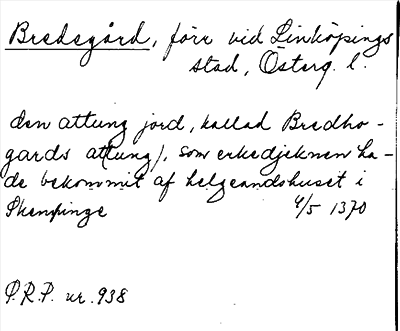 Bredegård, förr vid Linköpings
stad, Österg. l.
den attung jord, kallad Bredho-
gards at(tung), som erkedjeknen ha-
de bekommit af helgeandshuset i
Skenpinge 4/5 1370
P.R.P. nr. 938